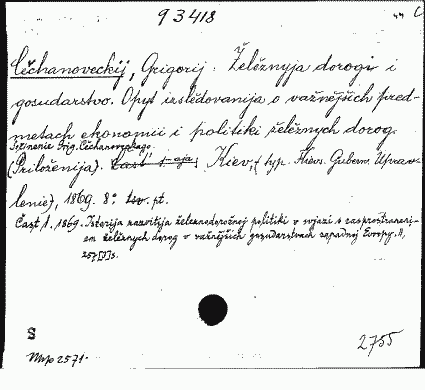 93418
Cěchanoveckij, Grigorij: Želěznyja dorogi i
gosudarstvo. Opyt izslědovanija o važnějšich pred-
metach ekonomii i politiki želěznych dorog.
Sočinenie Grig. Cěchanoveckago.
(Priloženija). Čast' 1-aja. Kiev, (typ. Kiev. Gubern. Upravlenie), 1869. 8° pt.
Čast' 1. 1869. Istorija razvitija železnodorožnoj politiki v svjazi s rasprostraneni-
em želěznych dorog v važnějšich gosudarstvach zapadnoj Evropy. II,
257[1] s.
S
2755
Mvp 2571.